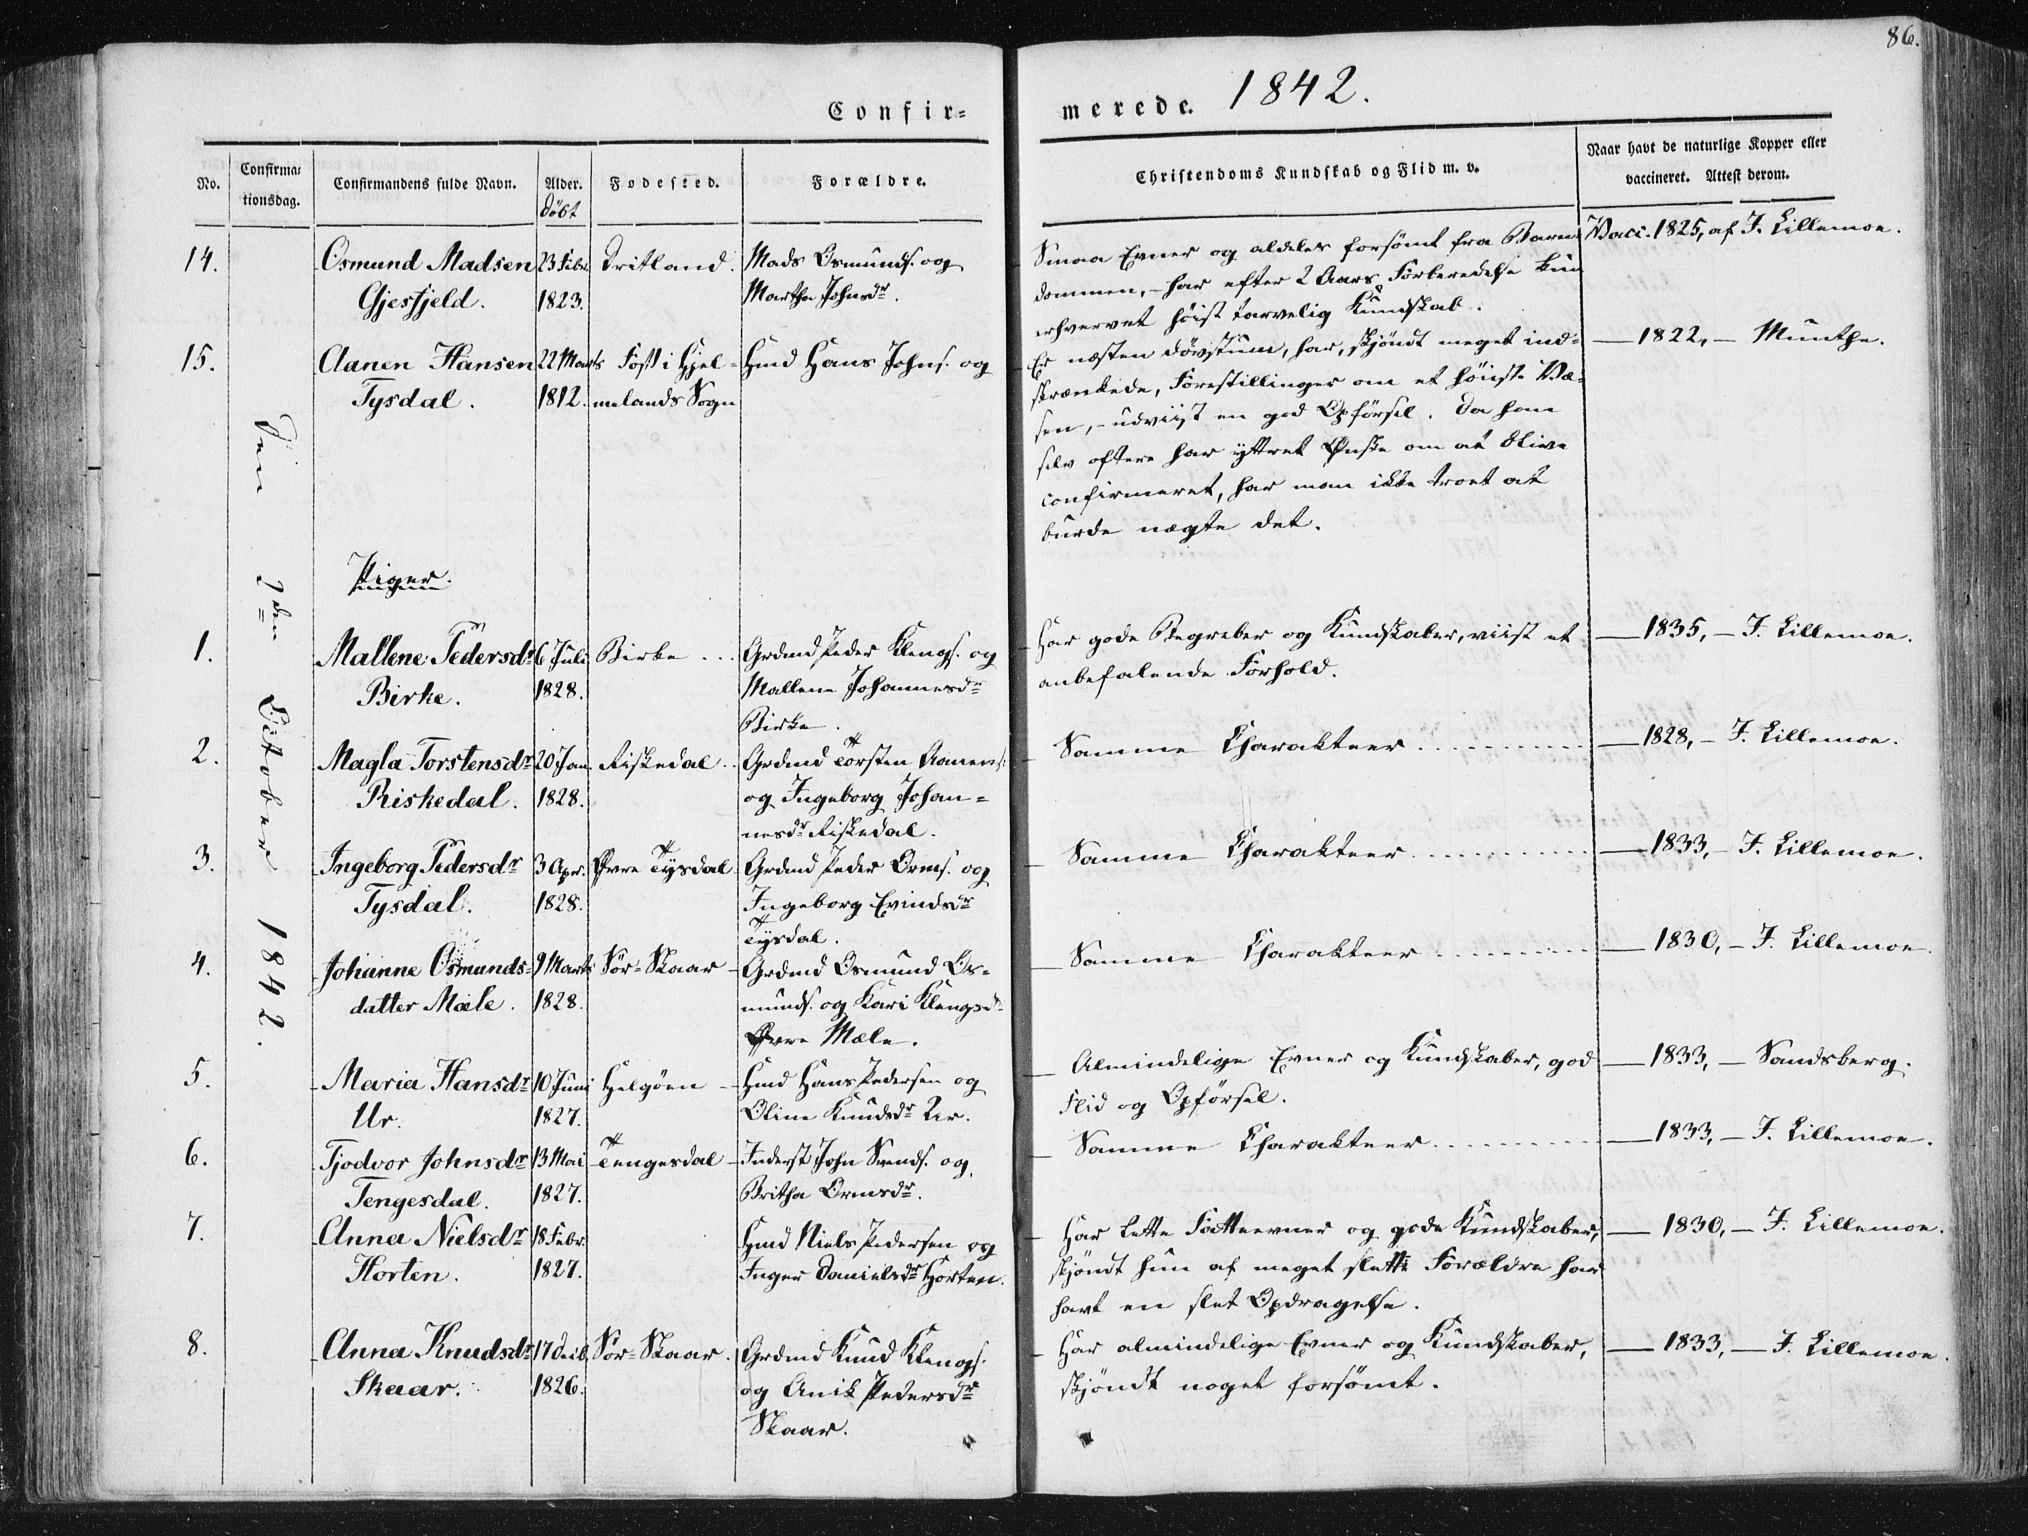 86.
Confir=
merede. 1842.
No.
Confirma=
tionsdag.
Confirmandens fulde Navn.
Alder.
døbt
Fødested.
Forældre.
Christendoms Kundskab og Flid m. v.
Naar havt de naturlige Kopper eller
vaccineret. Attest derom.
Den 2den October 1842.
14.
Osmund Madsen
Gjesfjeld.
23 Febr.
1823.
Tritland.
Mads Osmunds. og
Martha Johnsdr.
Smaa Evner og aldeles forsømt fra Barn
dommen, – har efter 2 Aars Forberedelse kun
erhvervet høist tarvelig Kundskab.
Vacc. 1825, af F. Lillemoe.
15.
Aanen Hansen
Tysdal.
22 Marts
1812.
Fost i Hjel=
melands Sogn
Hmd Hans Johns. og
Er næsten døvstum, har, skjøndt meget ind=
skrænkede, Forestillinger om et høieste Væ=
sen, – udviist en god Opførsel. Da han
selv oftere har yttret Ønske om at blive
confirmeret, har man ikke troet at
burde nægte det.
— 1822, – Munthe.
Piger.
1.
Mallene Pedersdr
Birke.
6 Juli
1828.
Birke ...
Grdmd Peder Klengs. og
Mallene Johannesdr
Birke.
Har gode Begreber og Kundskaber, viist et
anbefalende Forhold.
— 1835, – F. Lillemoe.
2.
Magla Torstensdr
Riskedal.
20 Jan.
1828.
Riskedal.
Grdmd Torsten Aanens.
og Ingeborg Johan=
nesdr Riskedal.
Samme Charakteer
— 1828, – F. Lillemoe.
3.
Ingeborg Pedersdr
Tysdal.
3 Apr.
1828.
Øvre Tysdal
Grdmd Peder Orms. og
Ingeborg Evindsdr
Tysdal.
Samme Charakteer
— 1833, – F. Lillemoe.
4.
Johanne Osmunds=
datter Mæle.
9 Marts
1828.
Sør-Skaar
Grdmd Osmund Os=
munds. og Kari Klengsdr
Øvre Mæle.
Samme Charakteer
— 1830, – F. Lillemoe.
5.
Maria Hansdr
Ur.
10 Juni
1827.
Helgøen
Hmd Hans Pedersen og
Oline Knudsdr Ur.
Almindelige Evner og Kundskaber, god
Flid og Opførsel.
— 1833, – Sandsberg.
6.
Tjodvor Johnsdr
Tengesdal.
13 Mai
1827.
Tengesdal
Inderst John Svends. og
Britha Ormsdr.
Samme Charakteer
— 1833, – F. Lillemoe.
7.
Anna Nielsdr
Horten.
18 Febr.
1827.
Hmd Niels Pedersen og
Inger Danielsdr Horten.
Har lette Fatteevner og gode Kundskaber,
skjøndt hun af meget slette Forældre har
havt en slet Opdragelse.
— 1830, – F. Lillemoe.
8.
Anna Knudsdr
Skaar.
17 Decb.
1826.
Sør-Skaar.
Grdmd Knud Klengs.
og Anik Pedersdr
Skaar.
Har almindelige Evner og Kundskaber,
skjøndt noget forsømt.
— 1833, – F. Lillemoe.